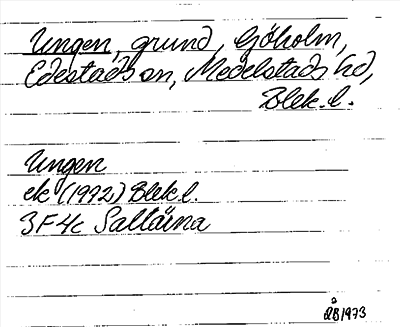 Ungen, grund, Göholm,
Edestads sn, Medelstads hd,
Blek. l.
Ungen
ek (1972) Blek l.
3F4c Saltärna
1973